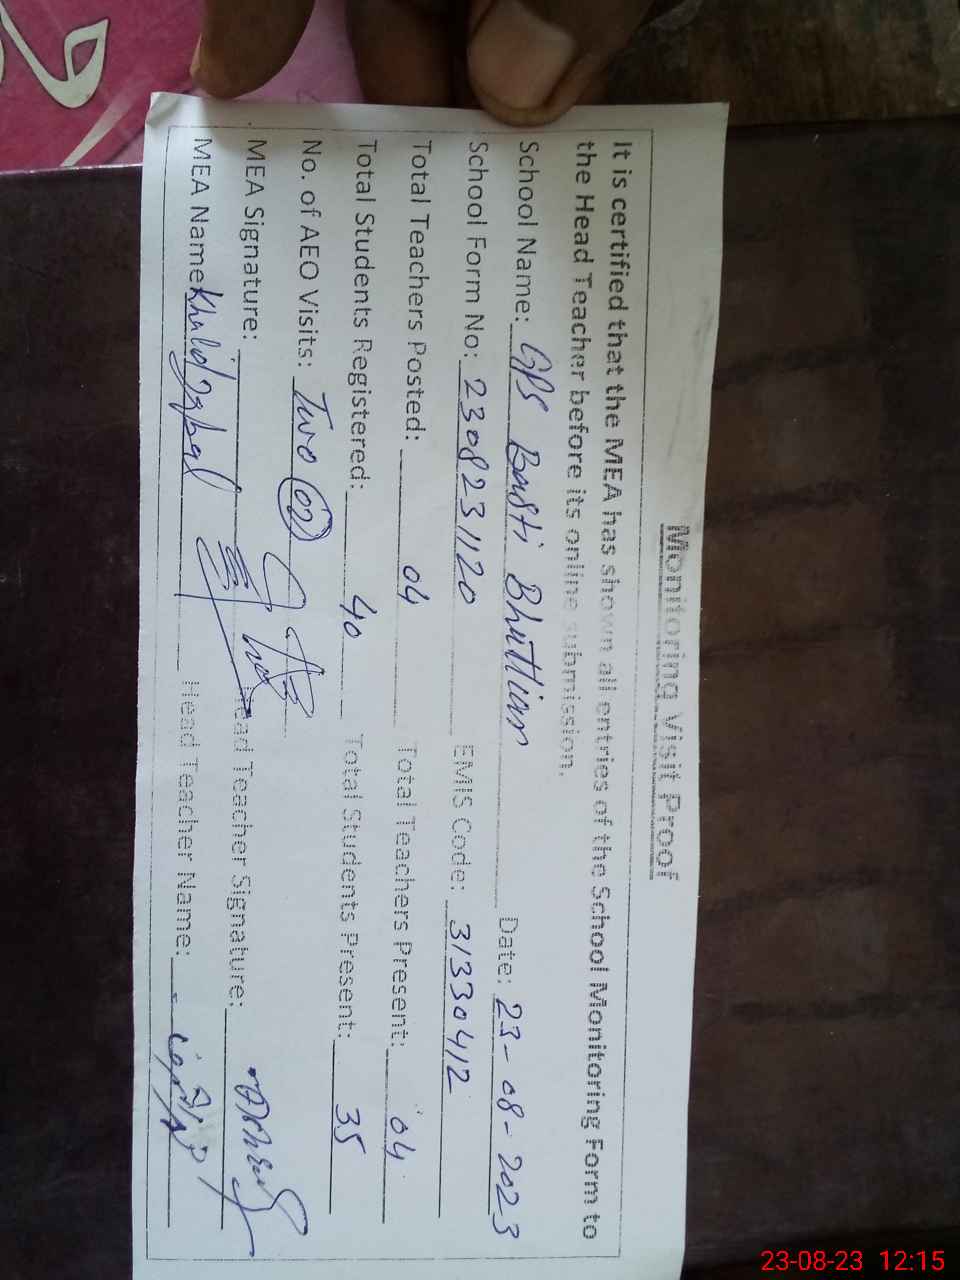 Monitoring Visit Proof
It is certified that the MEA has shown all entries of the School Monitoring Form to
the Head Teacher before its online submission.
School Name: GPS Basti Bhuttian Date: 23-08-2023
School Form No: 2308231120 EMIS Code: 31330412
Total Teachers Posted: 04 Total Teachers Present: 04
Total Students Registered: 40 Total Students Present: 35
No. of AEO Visits: Two (02)
MEA Signature: Head Teacher Signature:
MEA Name Khalid Iqbal Head Teacher Name:
23-08-23 12:15